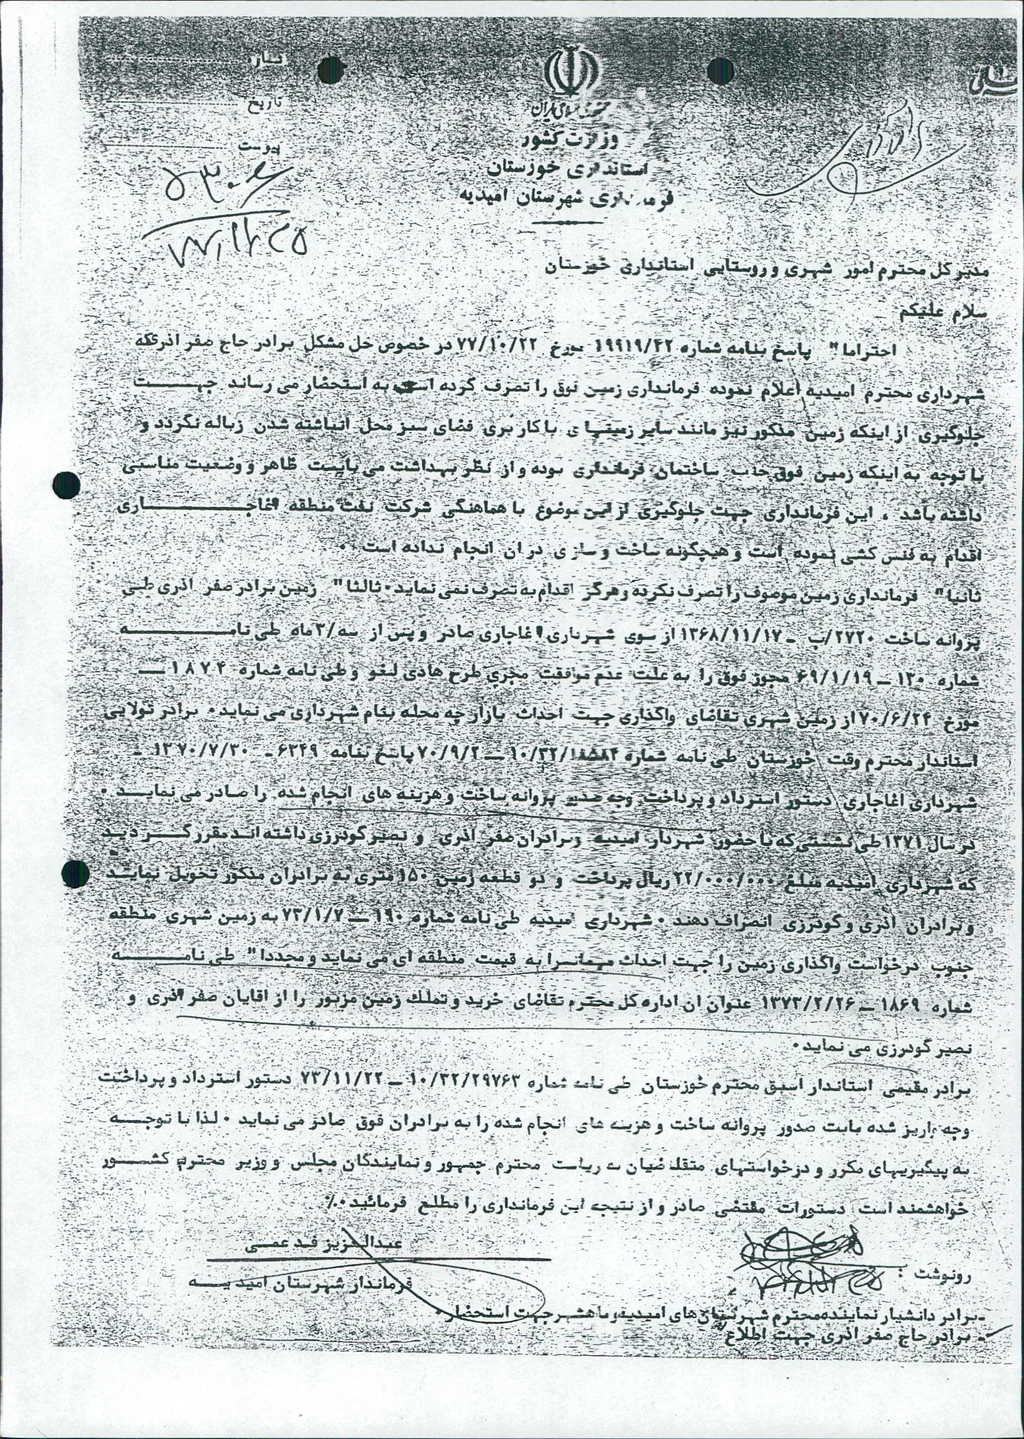 شماره
تاریخ
پیوست
۵۳۰۶
۷۷/۱۲/۲۵
جمهوری اسلامی ایران
وزارت کشور
استانداری خوزستان
فرمانداری شهرستان امیدیه
مدیر کل محترم امور شهری و روستایی استانداری خوزستان
سلام علیکم
احتراما" پاسخ بنامه شماره ۱۹۹۱۹/۴۲ مورخ ۷۷/۱۰/۲۲ در خصوص حل مشکل برادر حاج صفر اذری که
شهرداری محترم امیدیه اعلام نموده فرمانداری زمین فوق را تصرف کرده است به استحضار می رساند جهت
جلوگیری از اینکه زمین مذکور نیز مانند سایر زمینهای با کاربری فضای سبز محل انباشته شدن زباله نگردد و
با توجه به اینکه زمین فوق جنب ساختمان فرمانداری بوده و از نظر بهداشت می بایست ظاهر و وضعیت مناسبی
داشته باشد ، این فرمانداری جهت جلوگیری از این موضوع با هماهنگی شرکت نفت منطقه اغاجاری
اقدام به فنس کشی نموده است و هیچگونه ساخت و سازی در ان انجام نداده است .
ثانیا" فرمانداری زمین موصوف را تصرف نکرده و هرگز اقدام به تصرف نمی نماید . ثالثا" زمین برادر صفر اذری طی
پروانه ساخت ۲۷۲۰/ب - ۱۳۶۸/۱۱/۱۷ از سوی شهرداری اغاجاری صادر و پس از سه/۳ ماه طی نامه
شماره ۱۲۰ - ۶۹/۱/۱۹ مجوز فوق را به علت عدم موافقت مجری طرح هادی لغو و طی نامه شماره ۱۸۷۴ -
مورخ ۷۰/۶/۲۴ از زمین شهری تقاضای واگذاری جهت احداث بازارچه محله بنام شهرداری می نماید . برادر تولایی
استاندار محترم وقت خوزستان طی نامه شماره ۱۰/۳۲/۱۸۵۸۴ - ۷۰/۹/۲ پاسخ بنامه ۶۳۴۹ - ۱۳۷۰/۷/۳۰ -
شهرداری اغاجاری دستور استرداد و پرداخت وجه صدور پروانه ساخت و هزینه های انجام شده را صادر می نماید .
در سال ۱۳۷۱ طی نشستی که با حضور شهردار امیدیه و برادران صفر اذری و نصیر گودرزی داشته اند مقرر گردید
که شهرداری امیدیه مبلغ ۲۲/۰۰۰/۰۰۰ ریال پرداخت و دو قطعه زمین ۱۵۰ متری به برادران مذکور تحویل نماید
و برادران اذری و گودرزی انصراف دهند . شهرداری امیدیه طی نامه شماره ۱۹۰ - ۷۳/۱/۷ به زمین شهری منطقه
جنوب درخواست واگذاری زمین را جهت احداث میهمانسرا به قیمت منطقه ای می نماید و مجددا" طی نامه
شماره ۱۸۶۹ - ۱۳۷۳/۲/۲۶ عنوان ان اداره کل محترم تقاضای خرید و تملک زمین مزبور را از اقایان صفر اذری و
نصیر گودرزی می نماید .
برادر مقیمی استاندار اسبق محترم خوزستان طی نامه شماره ۱۰/۳۲/۲۹۷۶۳ - ۷۳/۱۱/۲۲ دستور استرداد و پرداخت
وجه واریز شده بابت صدور پروانه ساخت و هزینه های انجام شده را به برادران فوق صادر می نماید . لذا با توجه
به پیگیریهای مکرر و درخواستهای متقاضیان به ریاست محترم جمهور و نمایندگان مجلس و وزیر محترم کشور
خواهشمند است دستورات مقتضی صادر و از نتیجه این فرمانداری را مطلع فرمائید .٪
عبدالعزیز فدعمی
فرماندار شهرستان امیدیه
رونوشت :
- برادر دانشیار نماینده محترم شهرستان های امیدیه و ماهشهر جهت استحضار .
- برادر حاج صفر اذری جهت اطلاع